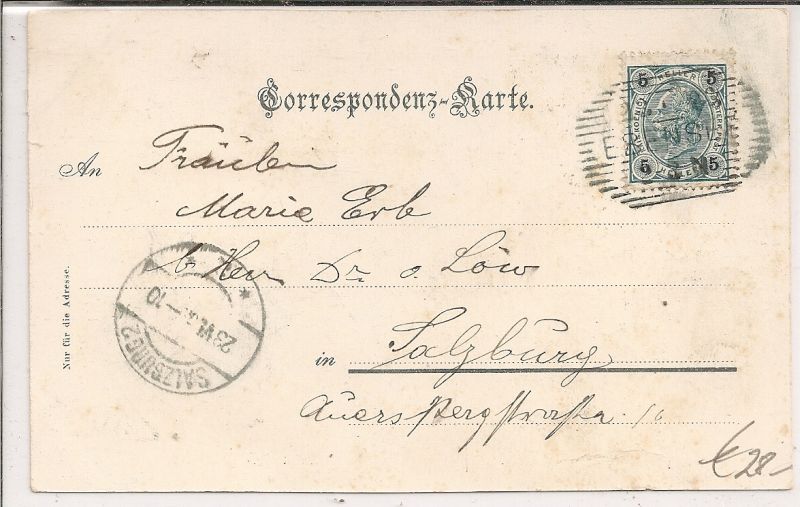 Correspondenz-Karte.
5 HELLER 5
5 HELLER 5
An Fräulein
Marie Erb
b. Herr Dr. v. Löw
in Salzburg
Auerspergstraße
Nur für die Adresse.
SALZBURG 2
23 VI
10
€ 28-